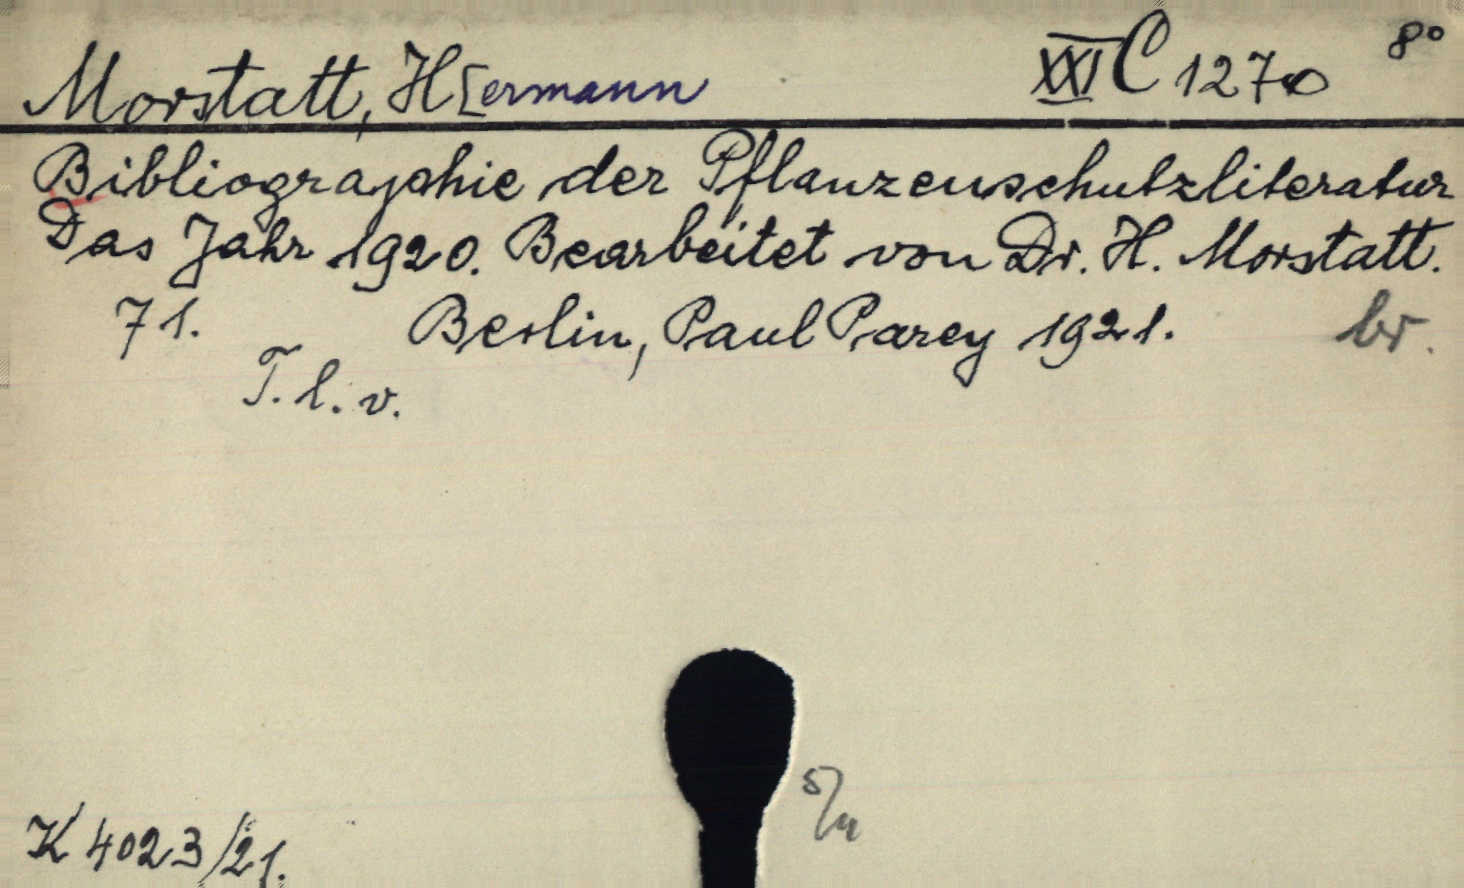 Morstatt, H[ermann XXI C 1270 8°
Bibliographie der Pflanzenschutzliteratur
Das Jahr 1920. Bearbeitet von Dr. H. Morstatt.
71. Berlin, Paul Parey 1921. br.
T. l. v.
K 4023/21.